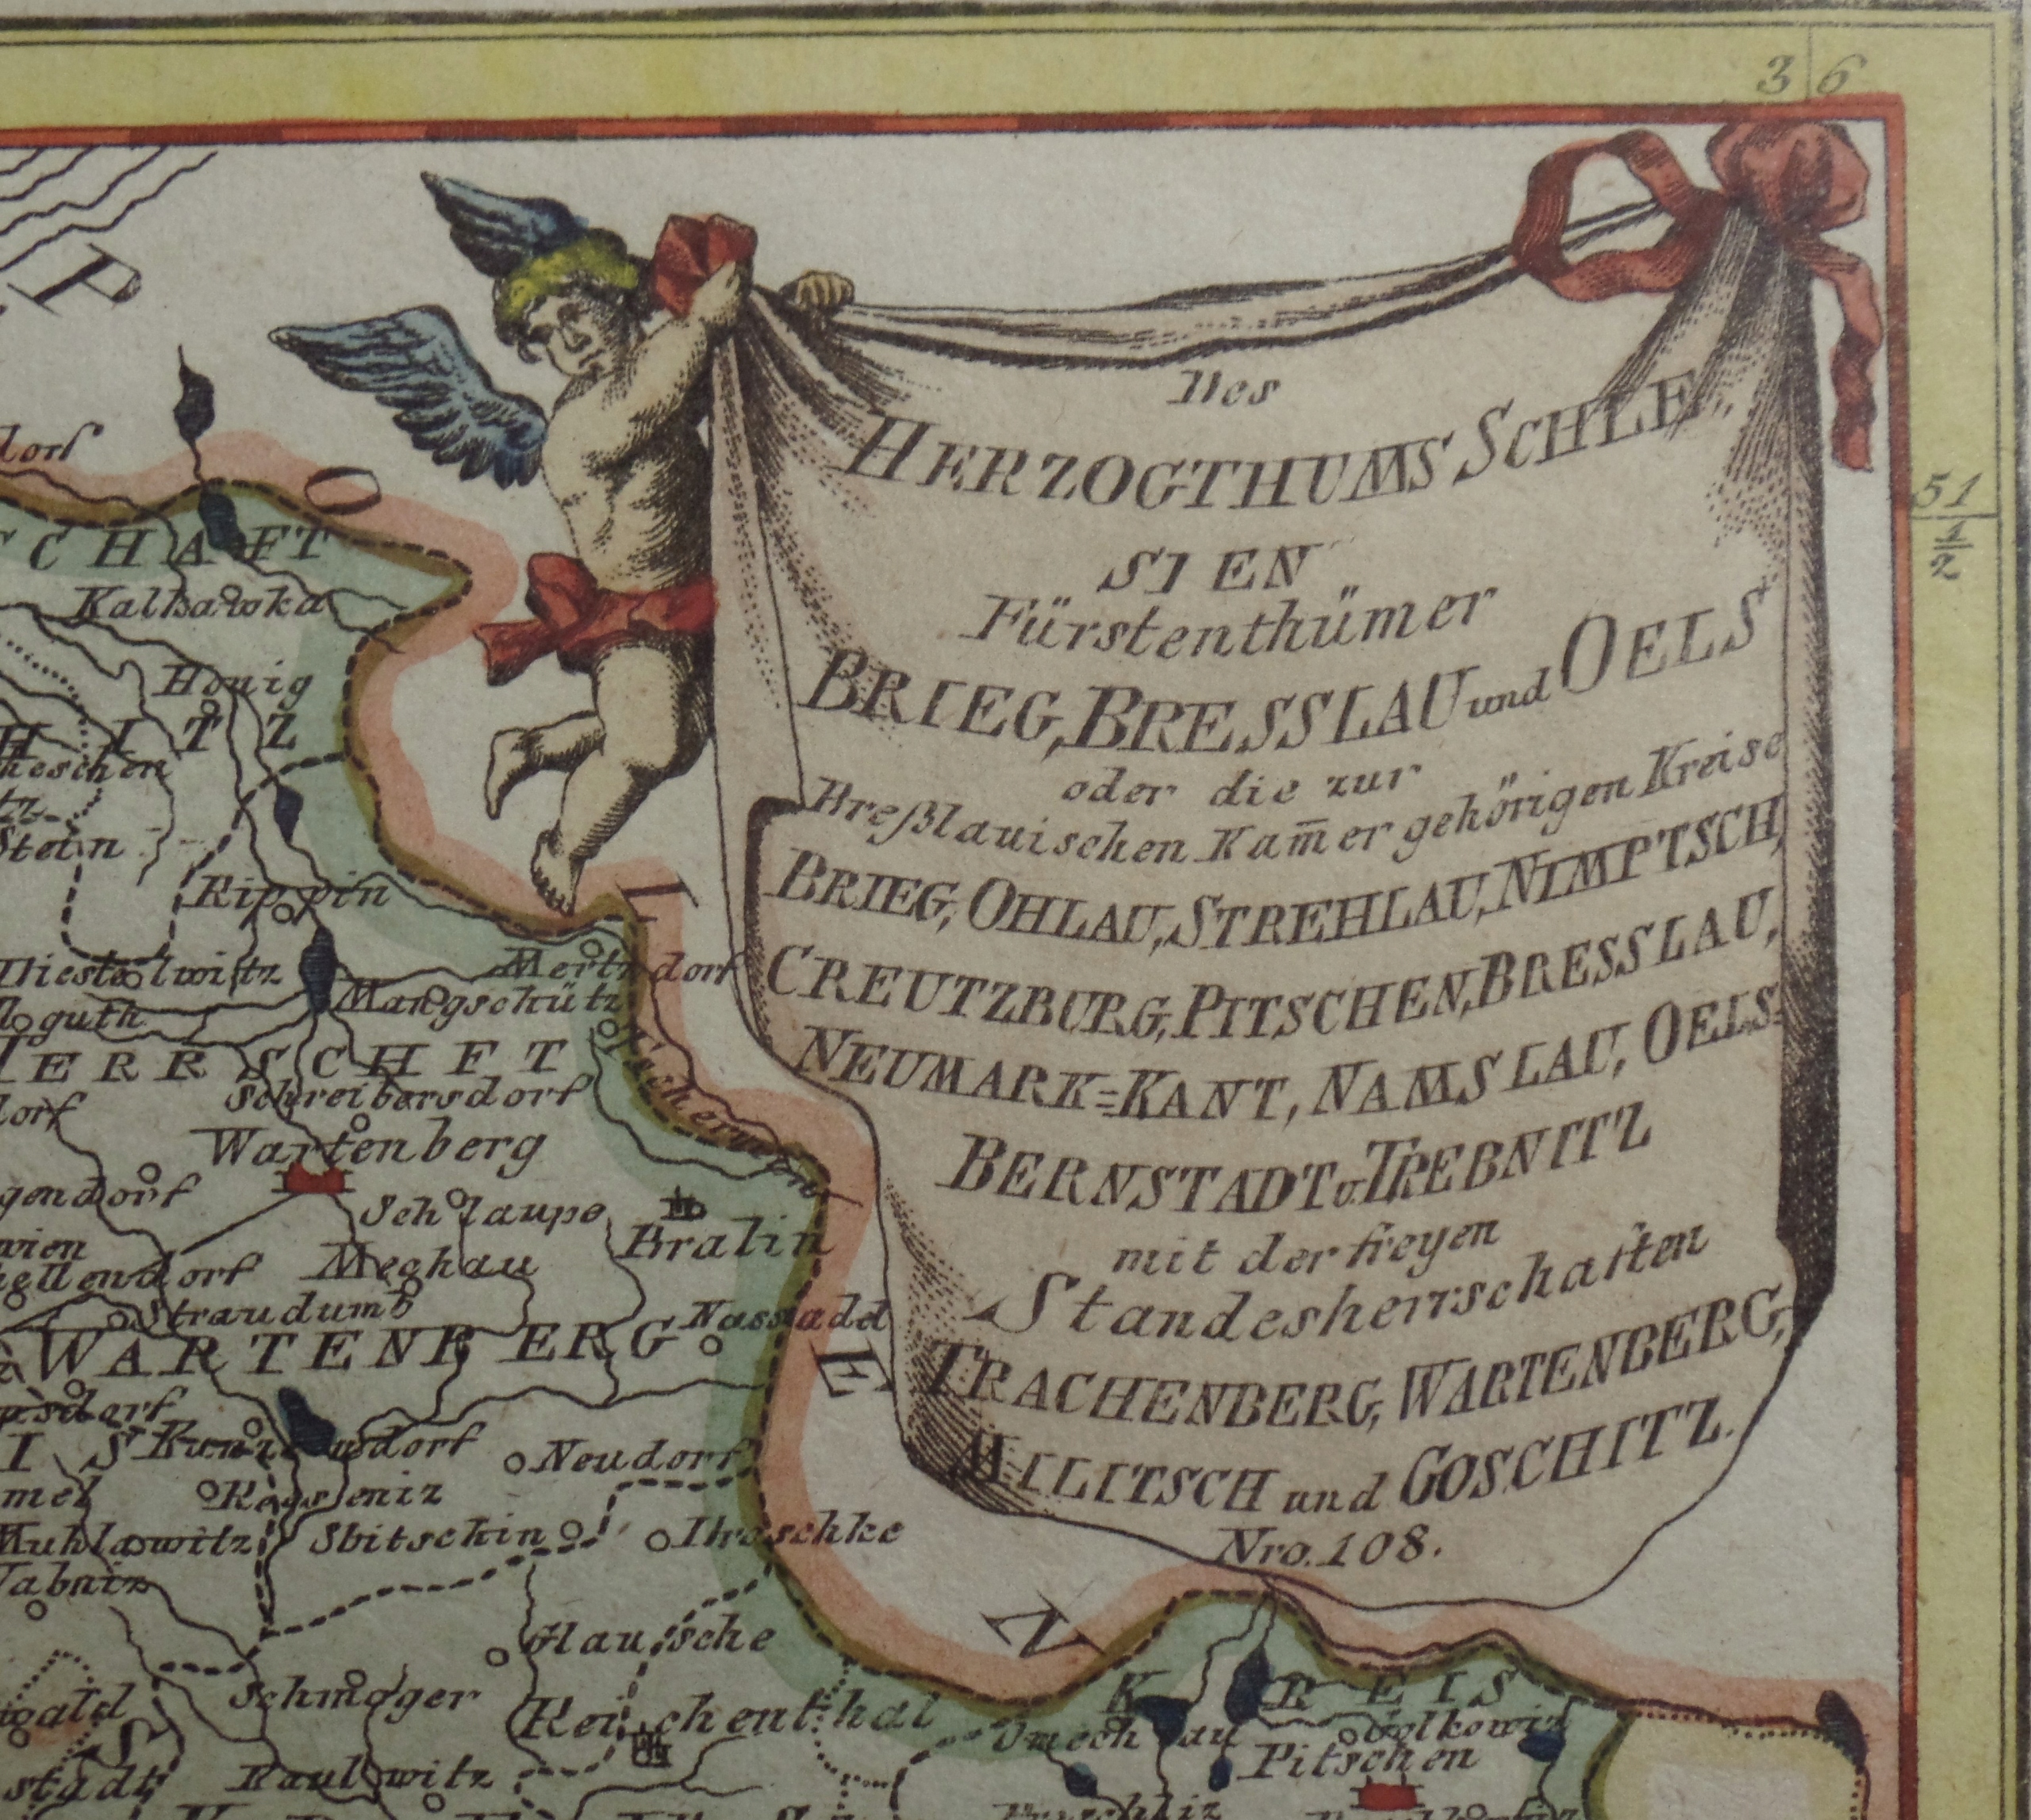 3 6
P
Des
HERZOGTHUMS SCHLE
SIEN
Fürstenthümer
BRIEG, BRESSLAU und OELS
oder die zur
Breßlauischen Kam̄er gehörigen Kreise
BRIEG, OHLAU, STREHLAU, NIMPTSCH,
CREUTZBURG, PITSCHEN, BRESSLAU,
NEUMARK=KANT, NAMSLAU, OELS=
BERNSTADT u. TREBNITZ
mit der freyen
Standesherrschaften
TRACHENBERG, WARTENBERG,
MILITSCH und GOSCHITZ.
Nro. 108.
51
1
2
dorf
O
SCHAFT
Kalkawka
Honig
H I T Z
heschen
tz
Stein
Rippin
L
Mertzdorf
Diestelwitz
Mangschütz
guth
HERRSCHFT
Schreibersdorf
dorf
Wartenberg
gendorf
Schlaupe
Bralin
wien
Mechau
hellendorf
Straudumb
Nassadel
WARTENBERG
E
psdorf
I S
Kunzendorf
Neudorf
mel
Muhlawitz
Sbitschin
Droschke
Tabniz
Glausche
N
wald
Schmoger
Reichenthal
KREIS
Omechau
Pitschen
S
stadt
Paulwitz